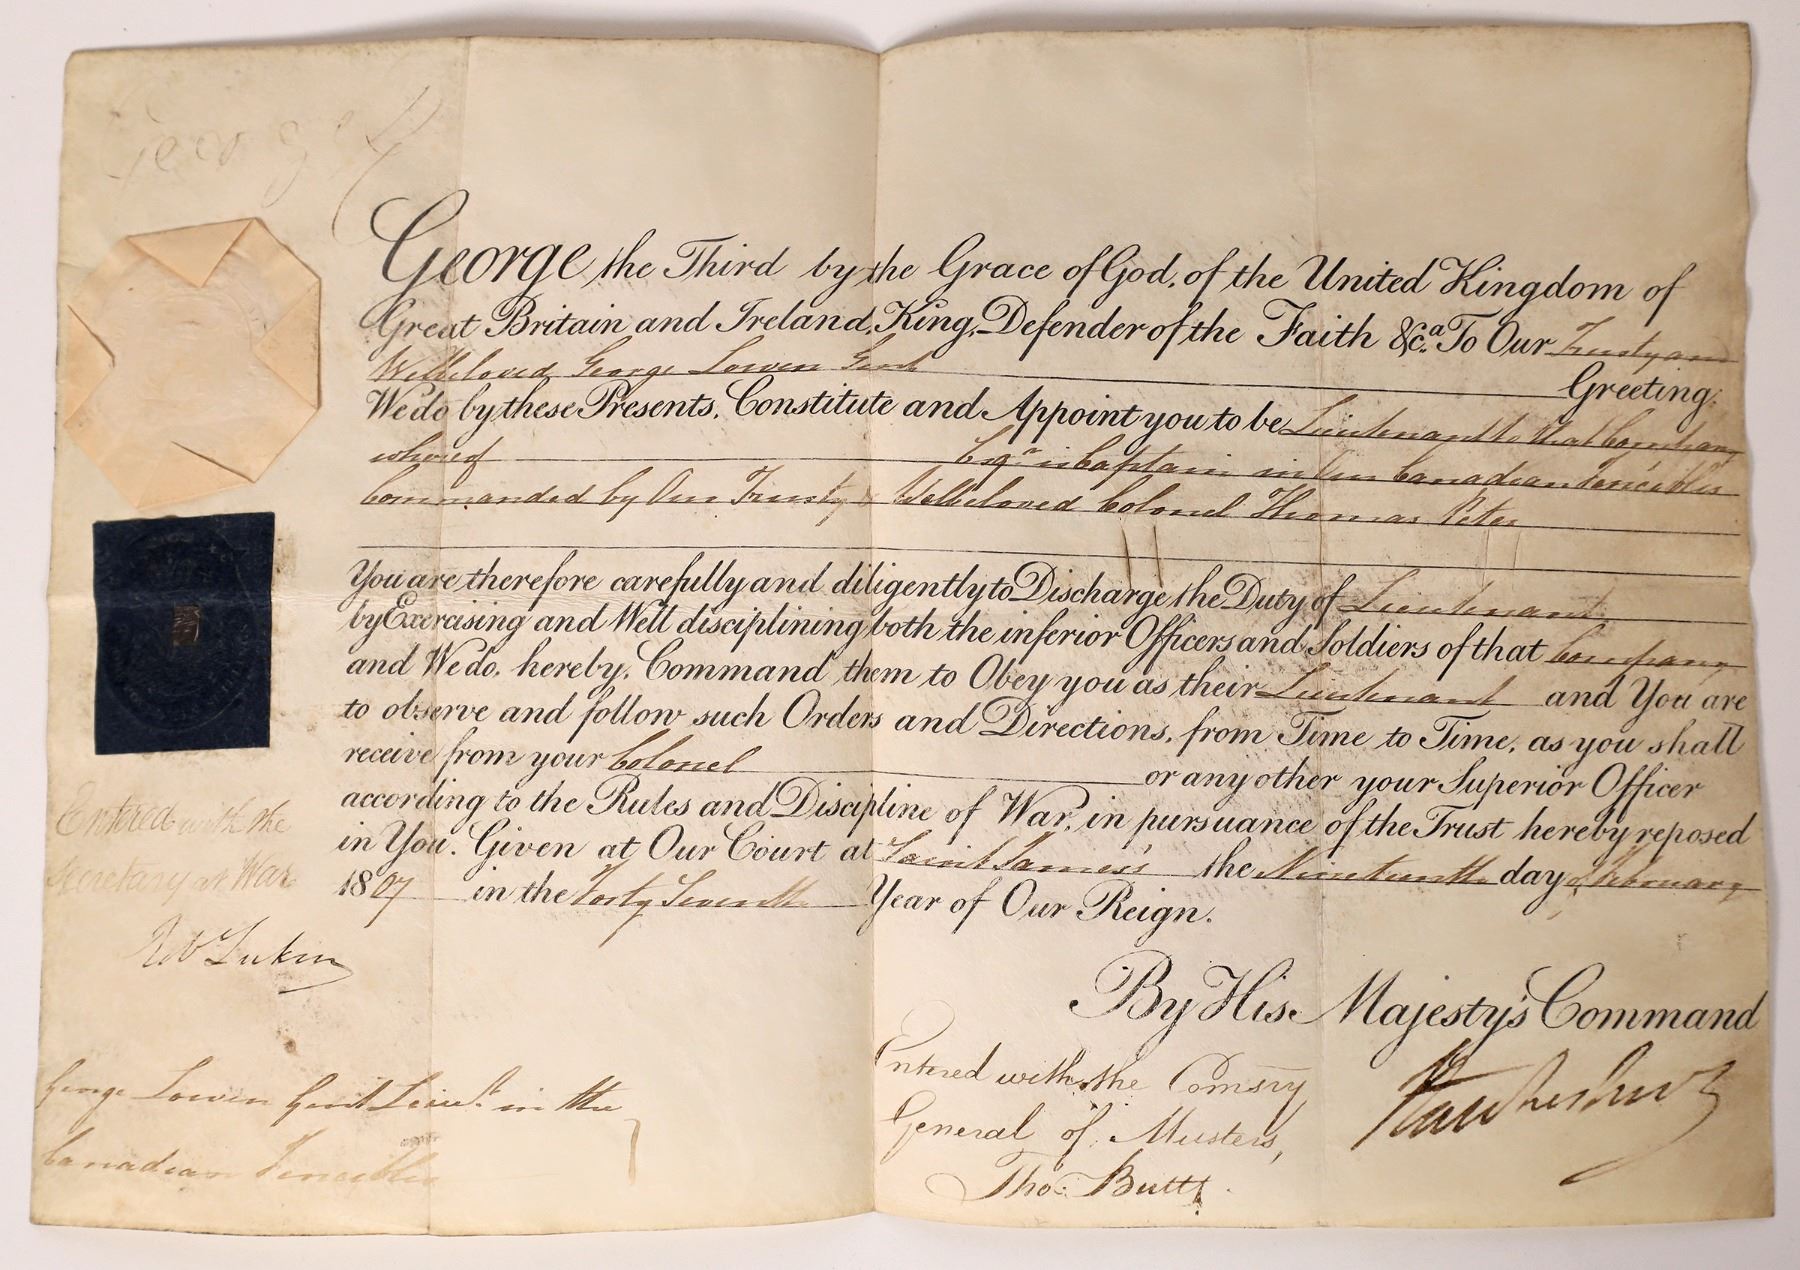 George R
George the Third by the Grace of God, of the United Kingdom of
Great Britain and Ireland, King, Defender of the Faith &c.a To Our Trusty and
Welbeloved George Lowen Gent Greeting:
We do by these Presents, Constitute and Appoint you to be Lieutenant to that Company
whereof Esqr. is Captain in Our Canadian Fencibles
Commanded by Our Trusty & Welbeloved Colonel Thomas Peter
You are therefore carefully and diligently to Discharge the Duty of Lieutenant
by Exercising and Well disciplining both the inferior Officers and Soldiers of that Company
and We do, hereby, Command them to Obey you as their Lieutenant and You are
to observe and follow such Orders and Directions, from Time to Time, as you shall
receive from your Colonel or any other your Superior Officer
according to the Rules and Discipline of War, in pursuance of the Trust hereby reposed
in You. Given at Our Court at Saint James's the Nineteenth day of February
1807 in the Forty Seventh Year of Our Reign.
By His Majesty's Command
Entered with the
Secretary at War
Rob Lukin
George Lowen Gent Lieut. in the
Canadian Fencibles
Entered with the Comsry
General of Musters,
Tho: Butts.
Hawkesbury